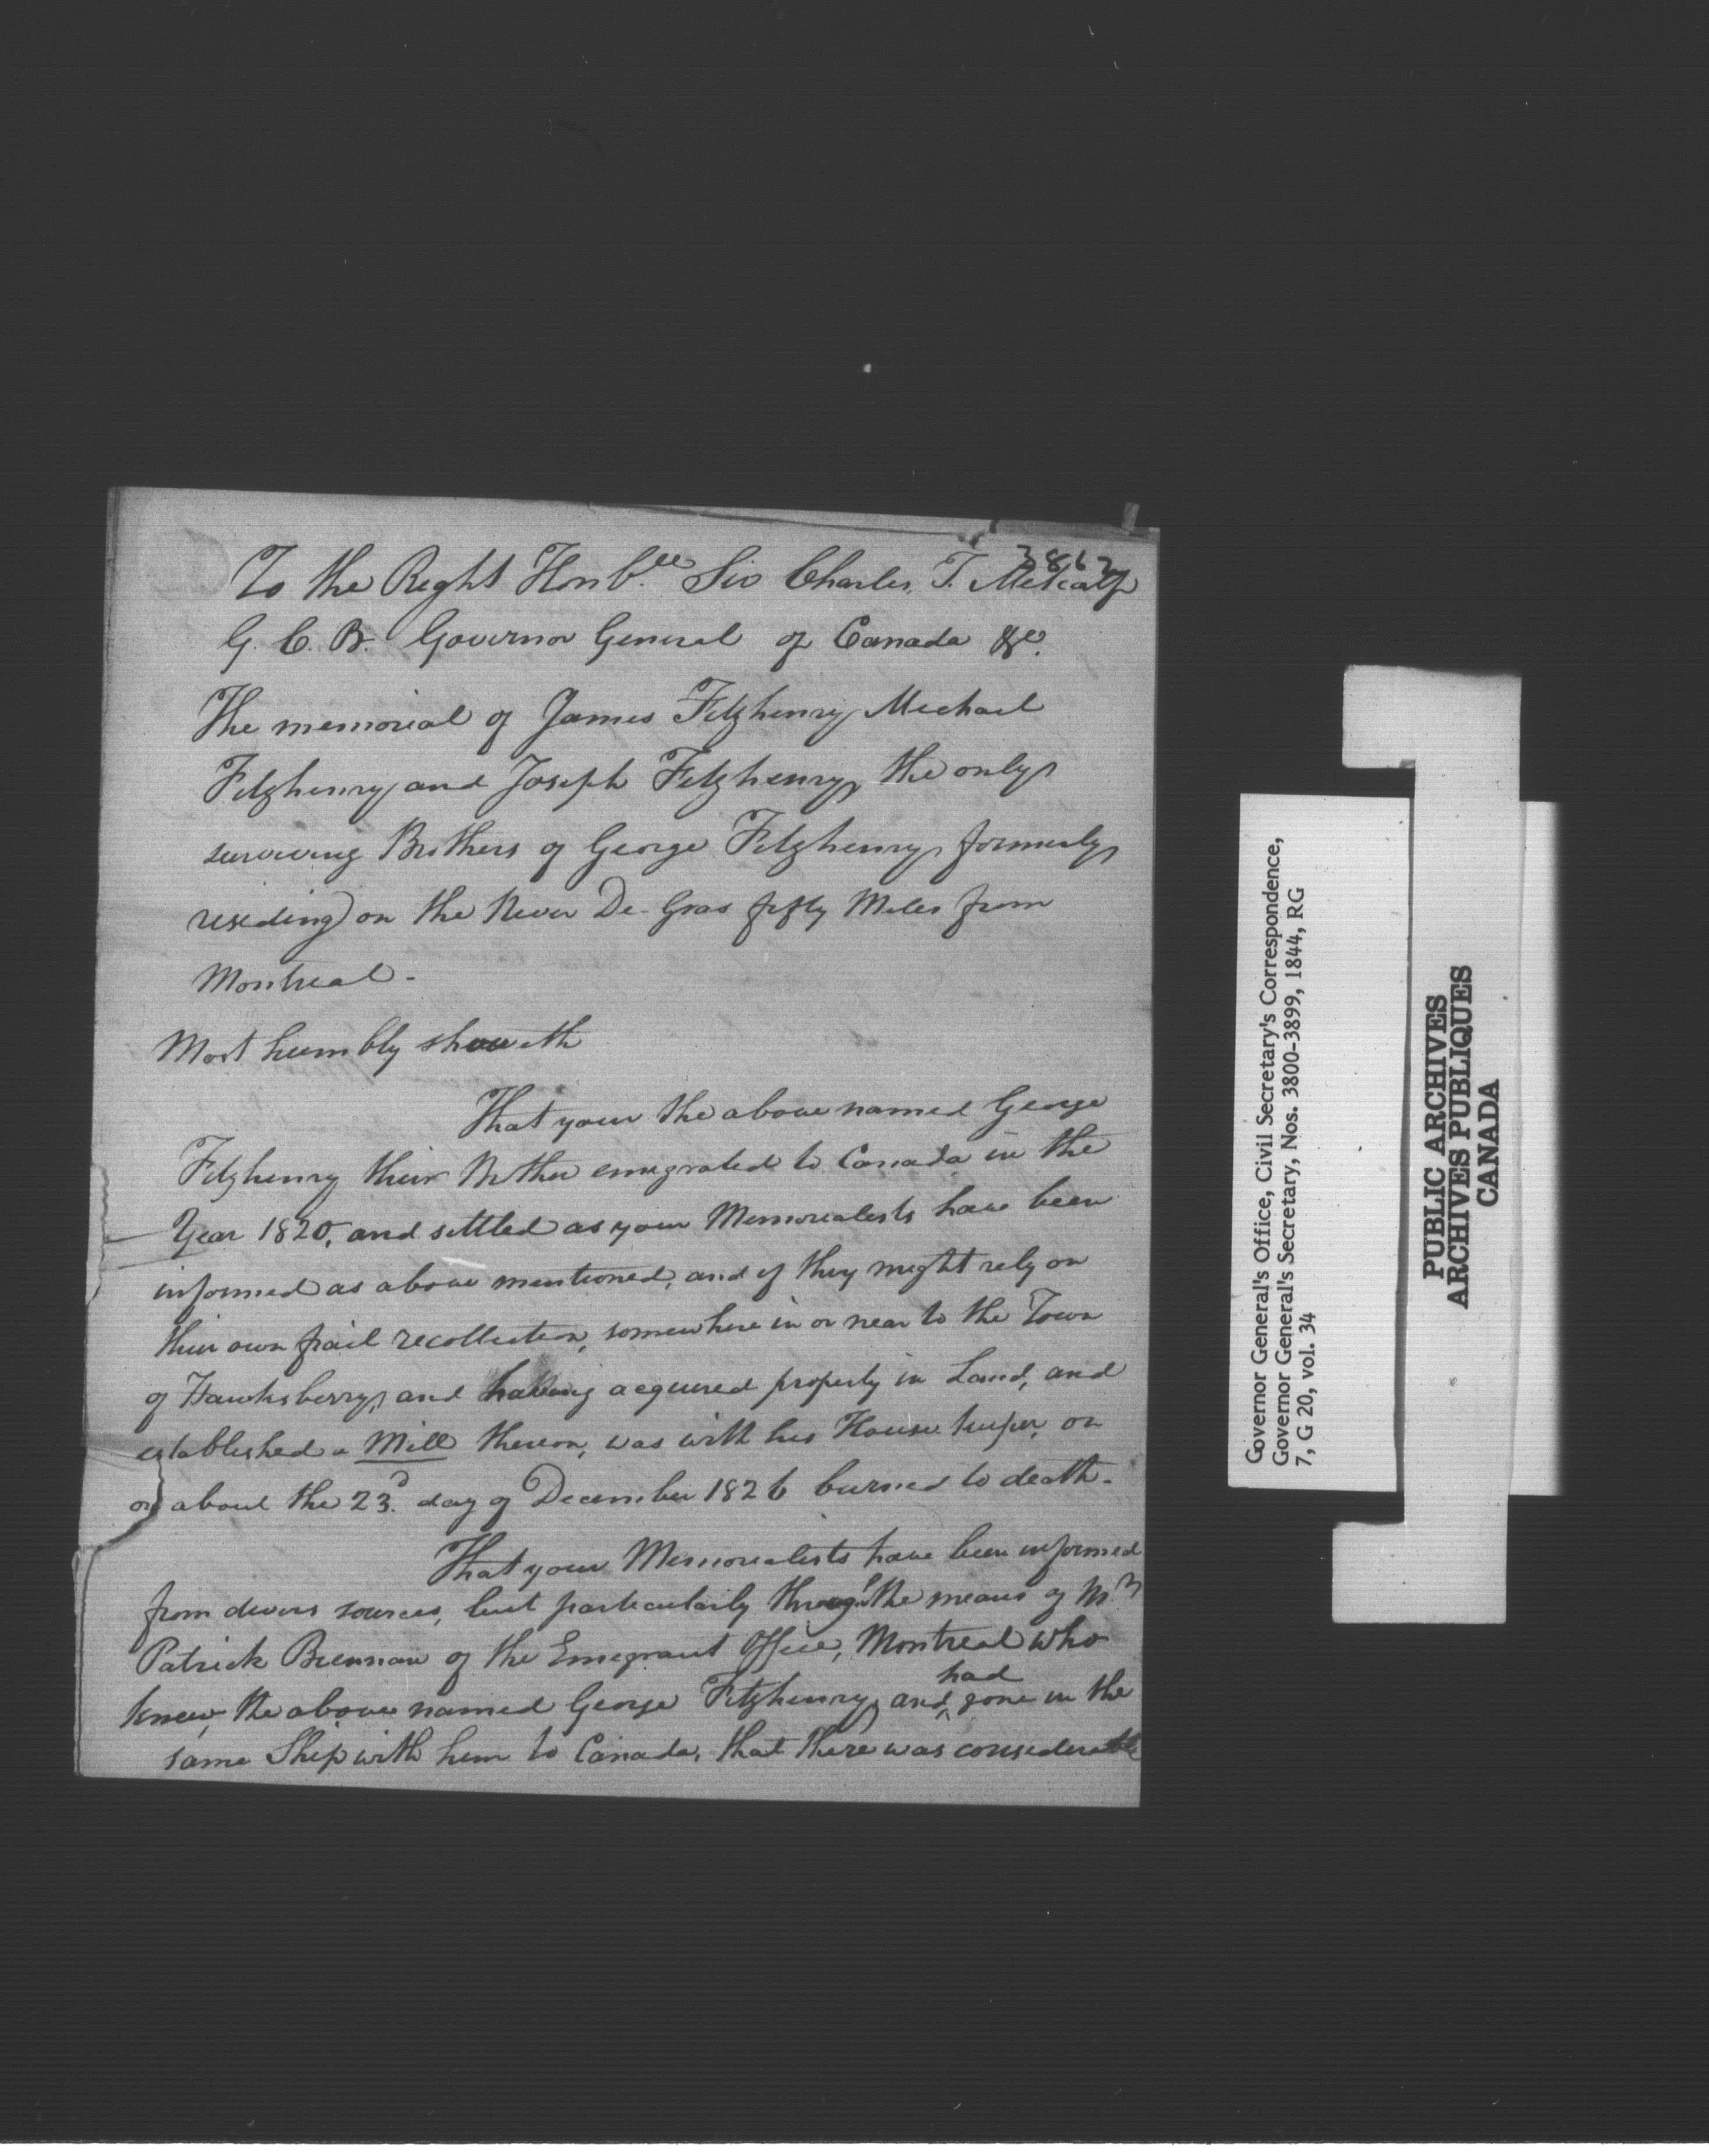 3862
To the Right Honble. Sir Charles, T. Metcalfe
G. C. B. Governor General of Canada &c.
The memorial of James Fitzhenry Michael
Fitzhenry and Joseph Fitzhenry, the only
surviving Brothers of George Fitzhenry, formerly
residing on the River De-Gras fifty Miles from
Montreal-
Most humbly showeth
That your the above named George
Fitzhenry their Brother emigrated to Canada in the
Year 1820, and settled as your Memorialists have been
informed as above mentioned, and if they might rely on
their own frail recollection, somewhere in or near to the Town
of Hawksberry, and having acquired property in Land, and
established a Mill thereon, was with his House keeper, on
or about the 23d. day of December 1826 burned to death-
That your Memorialists have been informed
from divers sources, but particularly through the means of Mr.
Patrick Brennan of the Emigrant Office, Montreal who
knew the above named George Fitzhenry, and had gone in the
same Ship with him to Canada, that there was considerable
Governor General's Office, Civil Secretary's Correspondence,
Governor General's Secretary, Nos. 3800-3899, 1844, RG
7, G 20, vol. 34
PUBLIC ARCHIVES
ARCHIVES PUBLIQUES
CANADA